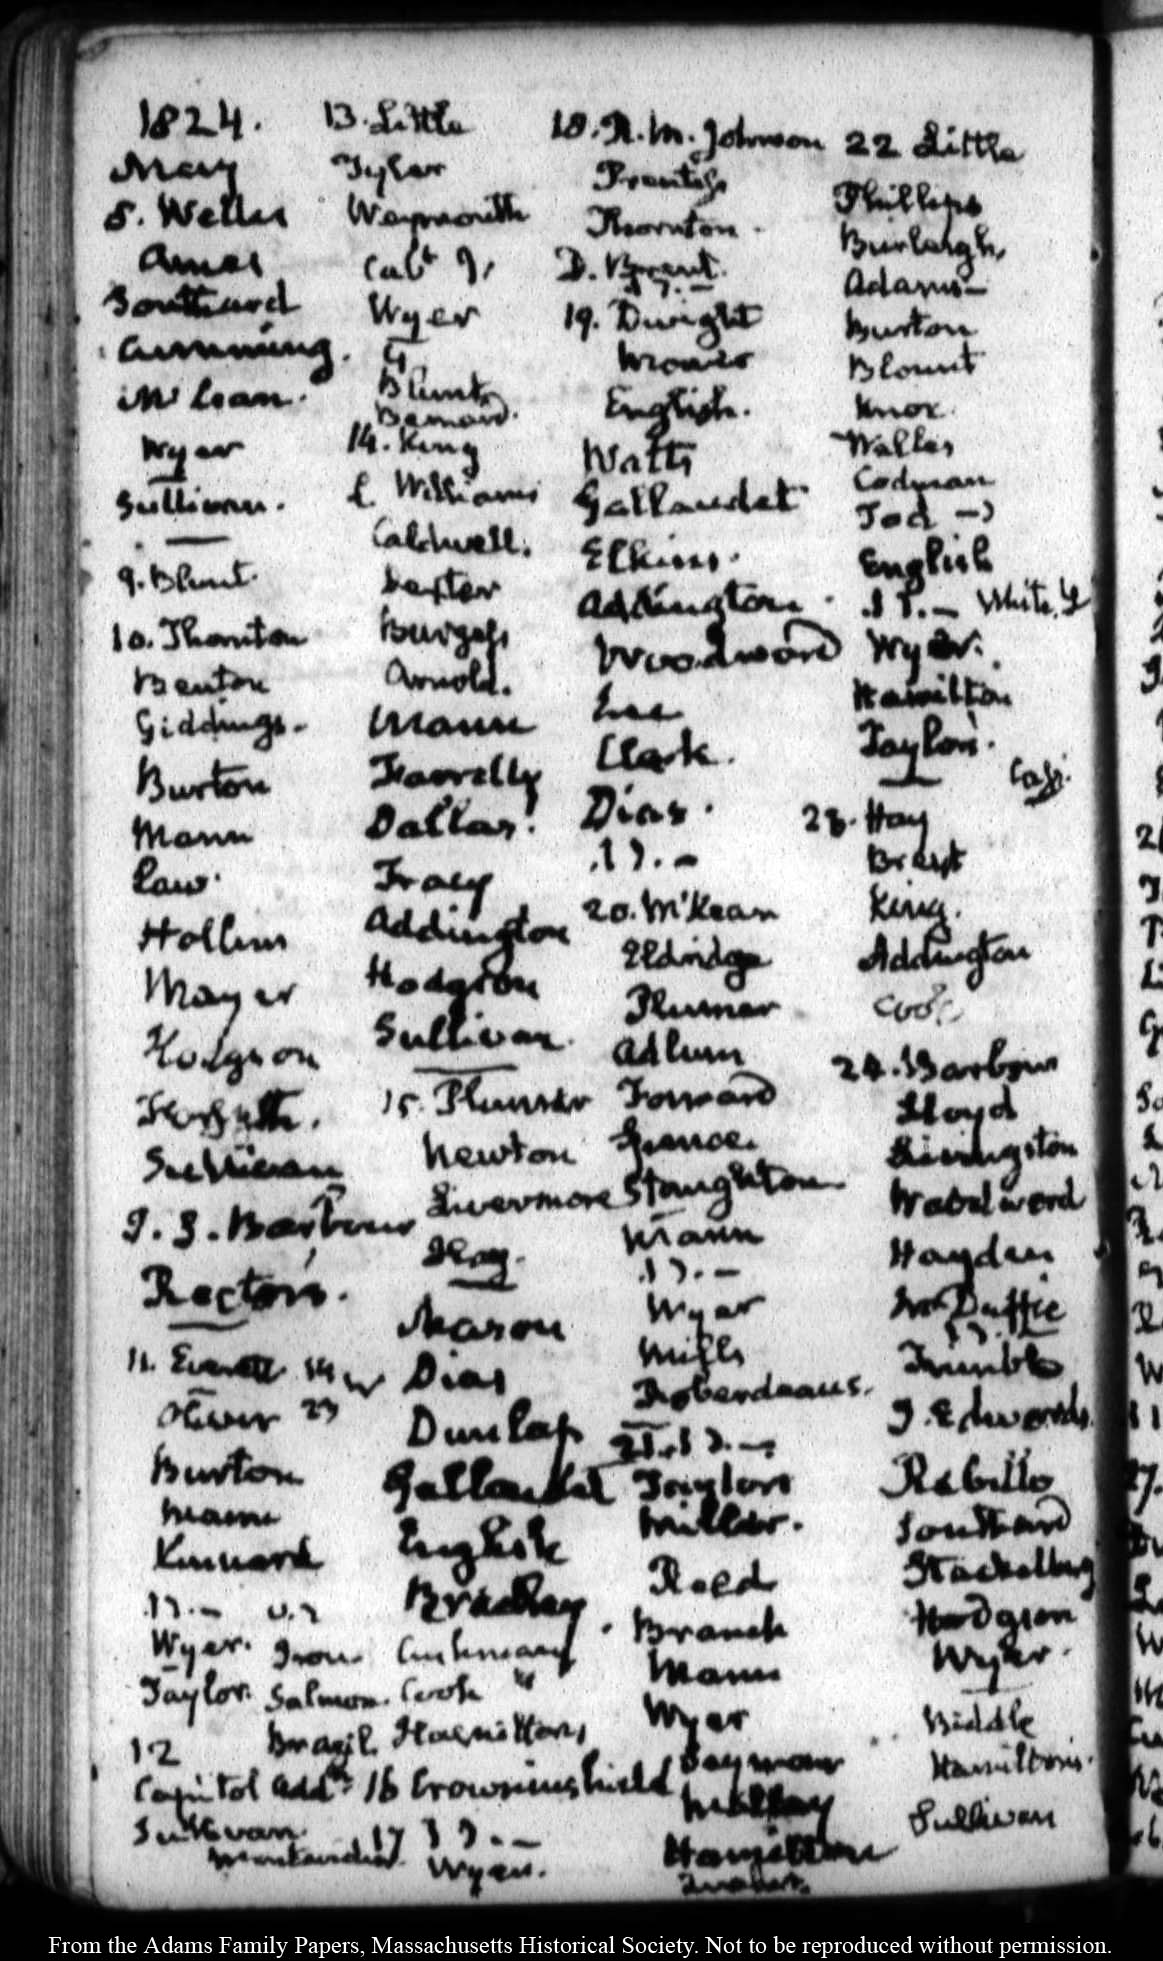 1824.
May
8. Wells
Ames
Southard
Cumming.
McLean.
Wyer
Sullivan.
9. Blunt.
10. Thornton
Benton
Giddings.
Burton
Mann
Law.
Hollins
Mayer
Hodgson
Forsyth.
Sullivan
J. S. Barbour
Rector's.
11. Everett 14
Oliver 23
Burton
Mann
Kinnard
Wyer.
Taylor.
12
Capitol Addn
Sullivan.
Montevideo
Salmon.
Brazil.
13. Little
Tyler
Weymouth
Cabt
Wyer
Blunt
Bernard.
14. King
L Williams
Caldwell.
Lester
Burgess
Arnold.
Mann
Farrelly
Dallas.
Tracy
Addington
Hodgson
Sullivan.
15. Plumer
Newton
Livermore
Hay.
Mason
Dias
Dunlap
Gallaudet
English
Bradley
Cushman
Cook
Hamiltons
16 Crowninshield
17
Wyer.
18. R. M. Johnson
Prentiss
Thornton.
D. Brent.
19. Dwight
Mower
English.
Watts
Gallaudet
Elkins.
Addington.
Woodward
Lee
Clark.
Dias.
20. McKean
Eldridge
Plumer
Adlum
Forward
Spence.
Stoughton
Mann
Wyer
Mills
Roberdeaus.
21.
Taylor
Miller.
Reed
Branch
Mann
Wyer
Seymour
Hamilton
22 Little
Phillips
Burleigh,
Adams
Burton
Blount
Knox.
Walles
Codman
Tod
English
White
Wyer.
Hamilton
Taylor.
23. Hay
Brent
King.
Addington
Cook
24. Barbour
Lloyd
Livingston
Woodward
Hayden
McDuffie
Trimble
J. Edwards.
Rebello
Southard
Stackelberg
Hodgson
Wyer.
Biddle
Hamiltons.
Sullivan
From the Adams Family Papers, Massachusetts Historical Society. Not to be reproduced without permission.